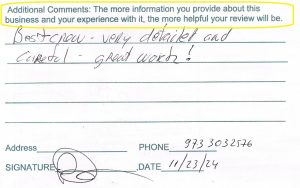 Additional Comments: The more information you provide about this
business and your experience with it, the more helpful your review will be.
Best crew - very detailed and
careful - great work!
Address
PHONE 973 3032576
SIGNATURE
DATE 11/23/24